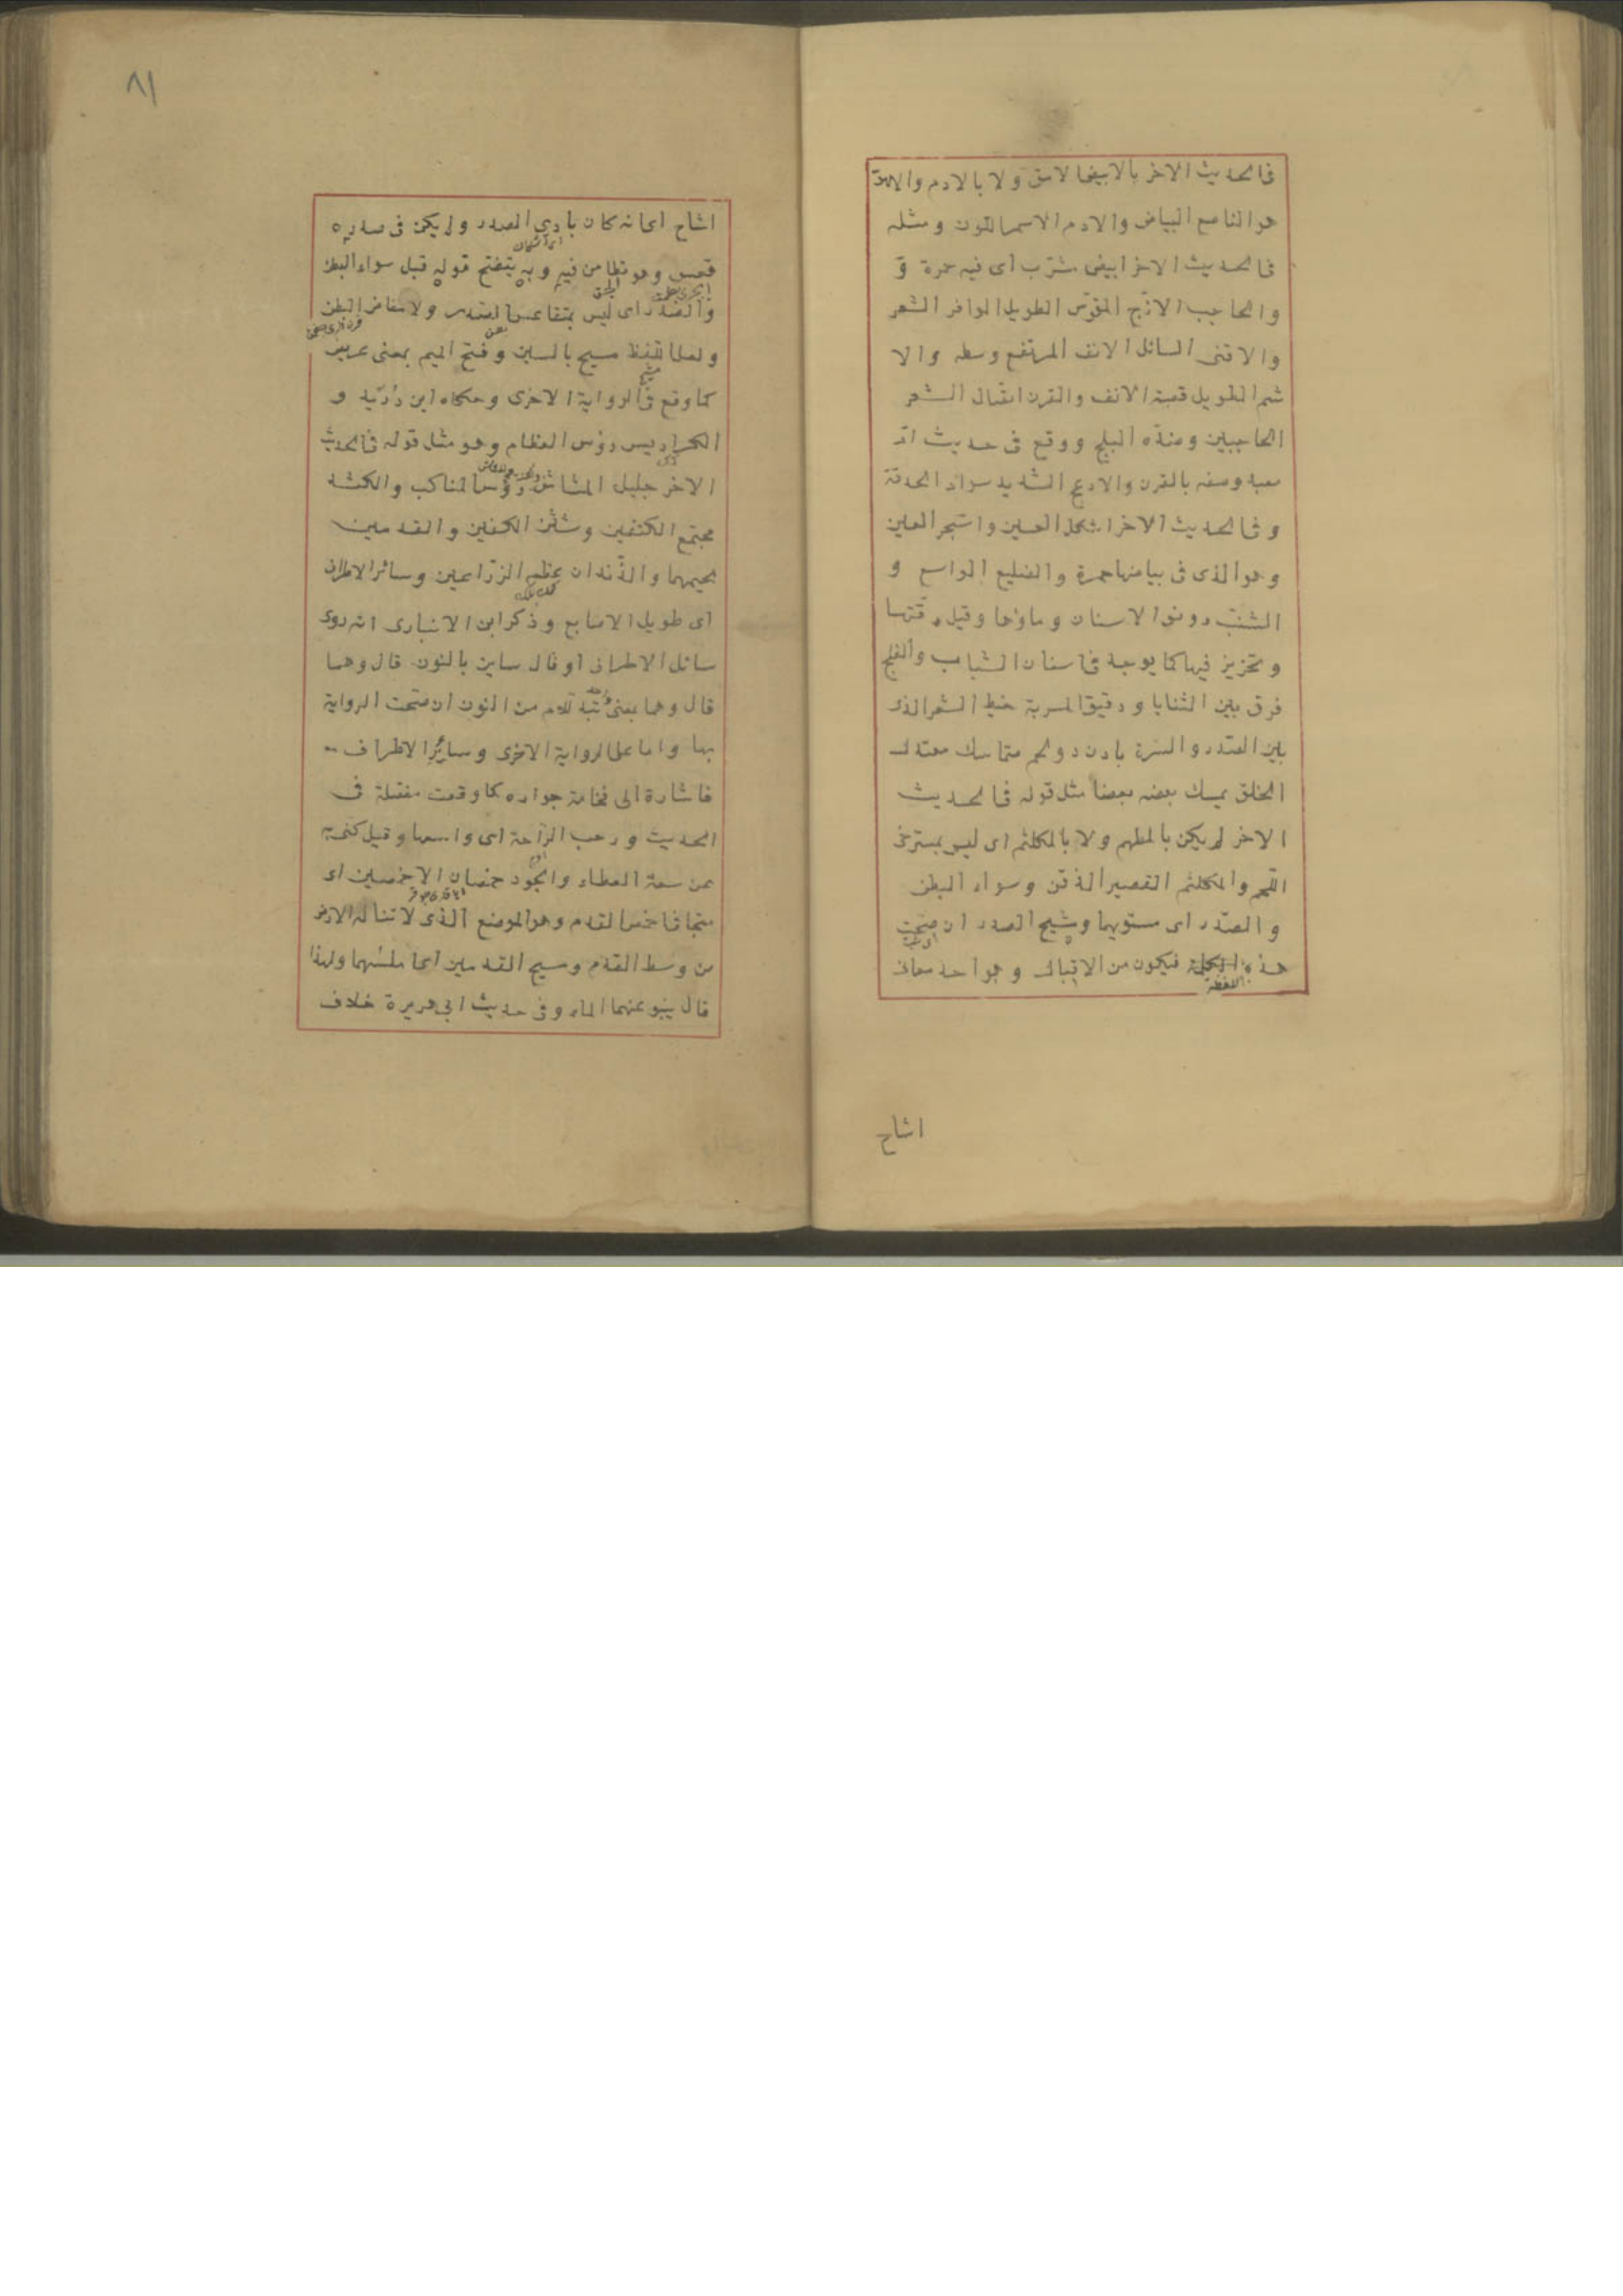 فى الحديث الاخر بالابيض الامهق ولا بالادم والامهق
هو الناصع البياض والادم الاسمر اللون ومثله
فى الحديث الاخر ابيض مشرب اى فيه حمرة و
والحاجب الازج المقوس الطويل الوافر الشعر
والاقنى السائل الانف المرتفع وسطه والا
شم الطويل قصبة الانف والقرن اتصال الشعر
الحاجبين وضده البلج ووقع فى حديث ام
معبد وصفه بالقرن والادعج الشديد سواد الحدقة
وفى الحديث الاخر اشكل العين واسجر العين
وهو الذى فى بياضها حمرة والضليع الواسع و
الشنب رونق الاسنان وماؤها وقيل رقتها
وتحزيز فيها كما يوجد فى اسنان الشباب والفلج
فرق بين الثنايا ودقيق المسربة خيط الشعر الذى
بين الصدر والسرة بادن ذو لحم متماسك معتدل
الخلق يمسك بعضه بعضا مثل قوله فى الحديث
الاخر لم يكن بالمطهم ولا بالمكلثم اى ليس بمسترخى
اللحم والمكلثم القصير الذقن وسواء البطن
والصدر اى مستويهما ومشيح الصدر ان صحت
هذه اللفظة فيكون من الاقبال وهو احد معانى
اشاح
٨١
اشاح اى انه كان بادى الصدر ولم يكن فى صدره
قعس وهو تطامن فيه وبه يتضح قوله قبل سواء البطن
والصدر اى ليس بمتقاعس الصدر ولا مفاض البطن
ولعل اللفظ مسيح بالسين وفتح الميم بمعنى عريض
كما وقع فى الرواية الاخرى وحكاه ابن دريد و
الكراديس رؤس العظام وهو مثل قوله فى الحديث
الاخر جليل المشاش رؤس المناكب والكتد
مجتمع الكتفين وشثن الكفين والقدمين
لحيمهما والزندان عظم الزراعين وسائل الاطراف
اى طويل الاصابع وذكر ابن الانبارى انه روى
سائل الاطراف او قال ساين بالنون قال وهما
قال وهما بمعنى تبدل اللام من النون ان صحت الرواية
بها واما على الرواية الاخرى وسائر الاطراف
فاشارة الى فخامة جوارحه كما وقعت مفصلة فى
الحديث ورحب الراحة اى واسعها وقيل كنى به
عن سعة العطاء والجود خمصان الاخمصين اى
متجافى اخمص القدم وهو الموضع الذى لا تناله الارض
من وسط القدم ومسيح القدمين اى املسهما ولهذا
قال ينبو عنهما الماء وفى حديث ابى هريرة خلاف